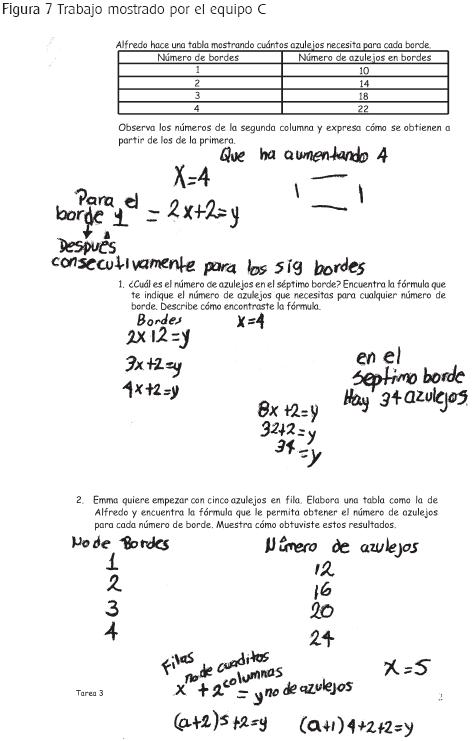 Figura 7 Trabajo mostrado por el equipo C
Alfredo hace una tabla mostrando cuántos azulejos necesita para cada borde.
Número de bordes Número de azulejos en bordes
1 10
2 14
3 18
4 22
Observa los números de la segunda columna y expresa cómo se obtienen a
partir de los de la primera.
Que ha aumentando 4
X=4
Para el
borde 1 = 2x+2=y
Después
consecutivamente para los sig bordes
1. ¿Cuál es el número de azulejos en el séptimo borde? Encuentra la fórmula que
te indique el número de azulejos que necesitas para cualquier número de
borde. Describe cómo encontraste la fórmula.
Bordes x=4
2x12=y
3x+2=y
4x+2=y
en el
septimo borde
Hay 34 azulejos
8x+2=y
32+2=y
34=y
2. Emma quiere empezar con cinco azulejos en fila. Elabora una tabla como la de
Alfredo y encuentra la fórmula que le permita obtener el número de azulejos
para cada número de borde. Muestra cómo obtuviste estos resultados.
No de Bordes Número de azulejos
1 12
2 16
3 20
4 24
Filas
no de cuaditos
columnas
x + 2 = y no de azulejos
x=5
Tarea 3 2
(a+2)5+2=y (a+1)4+2+2=y